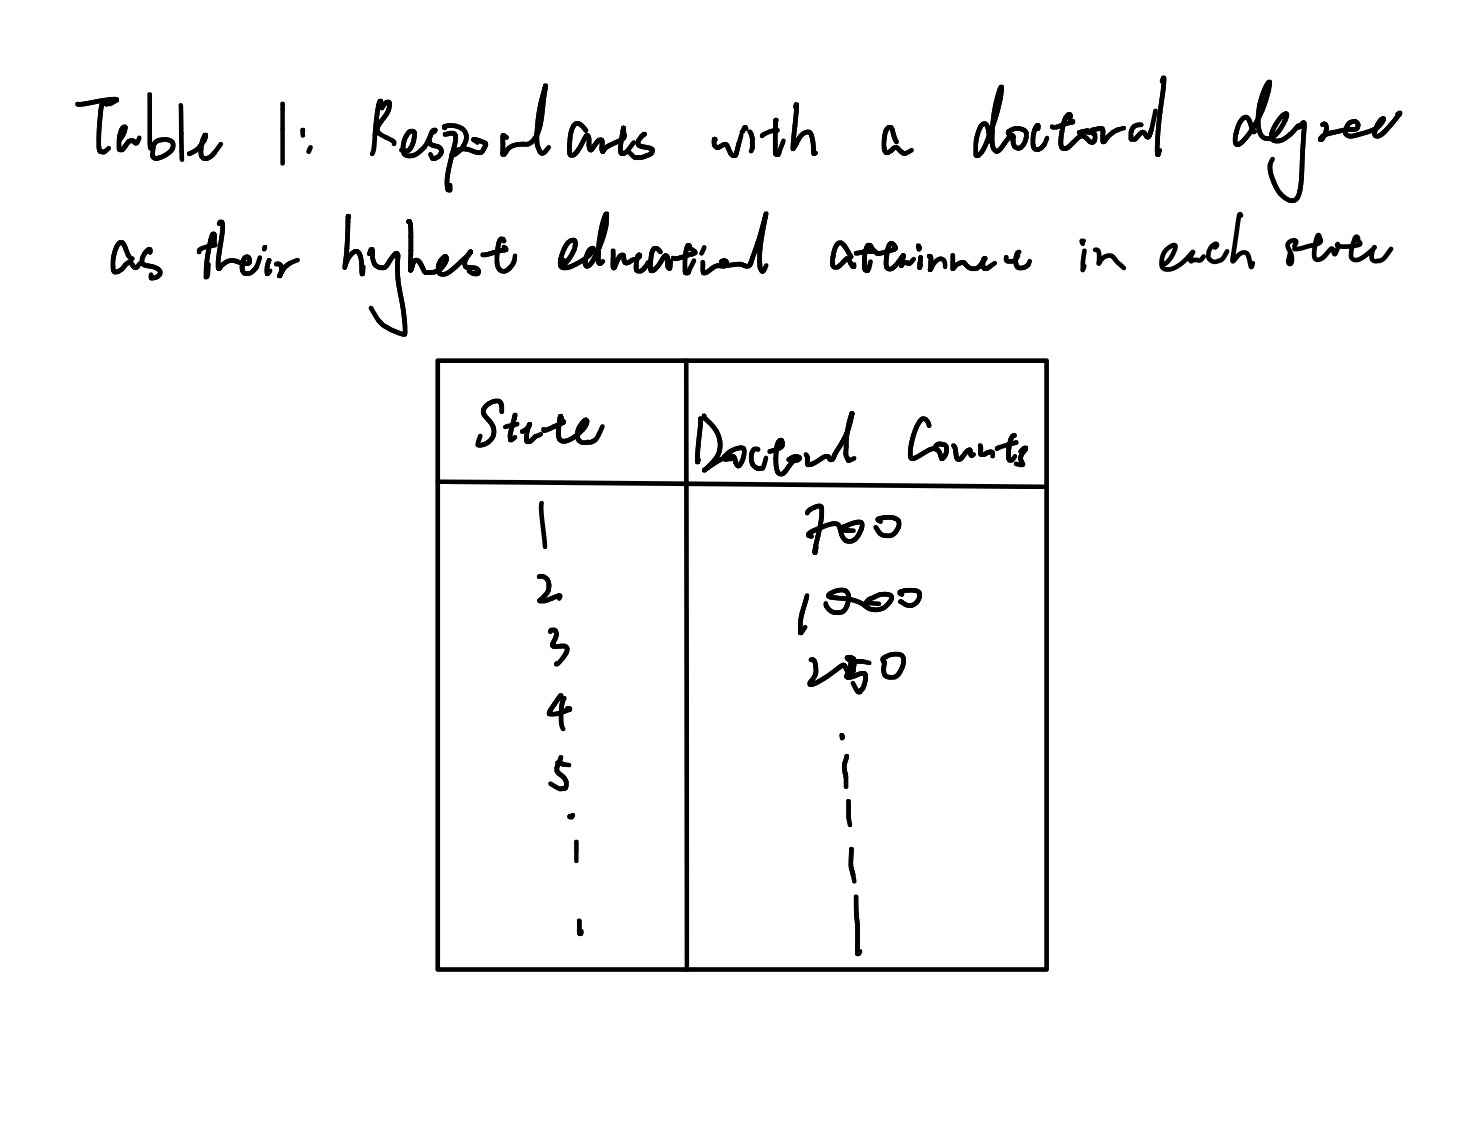 Table 1: Respondants with a doctoral degree
as their highest educational attainmet in each state
State Doctoral Counts
1 700
2 1000
3 250
4
5